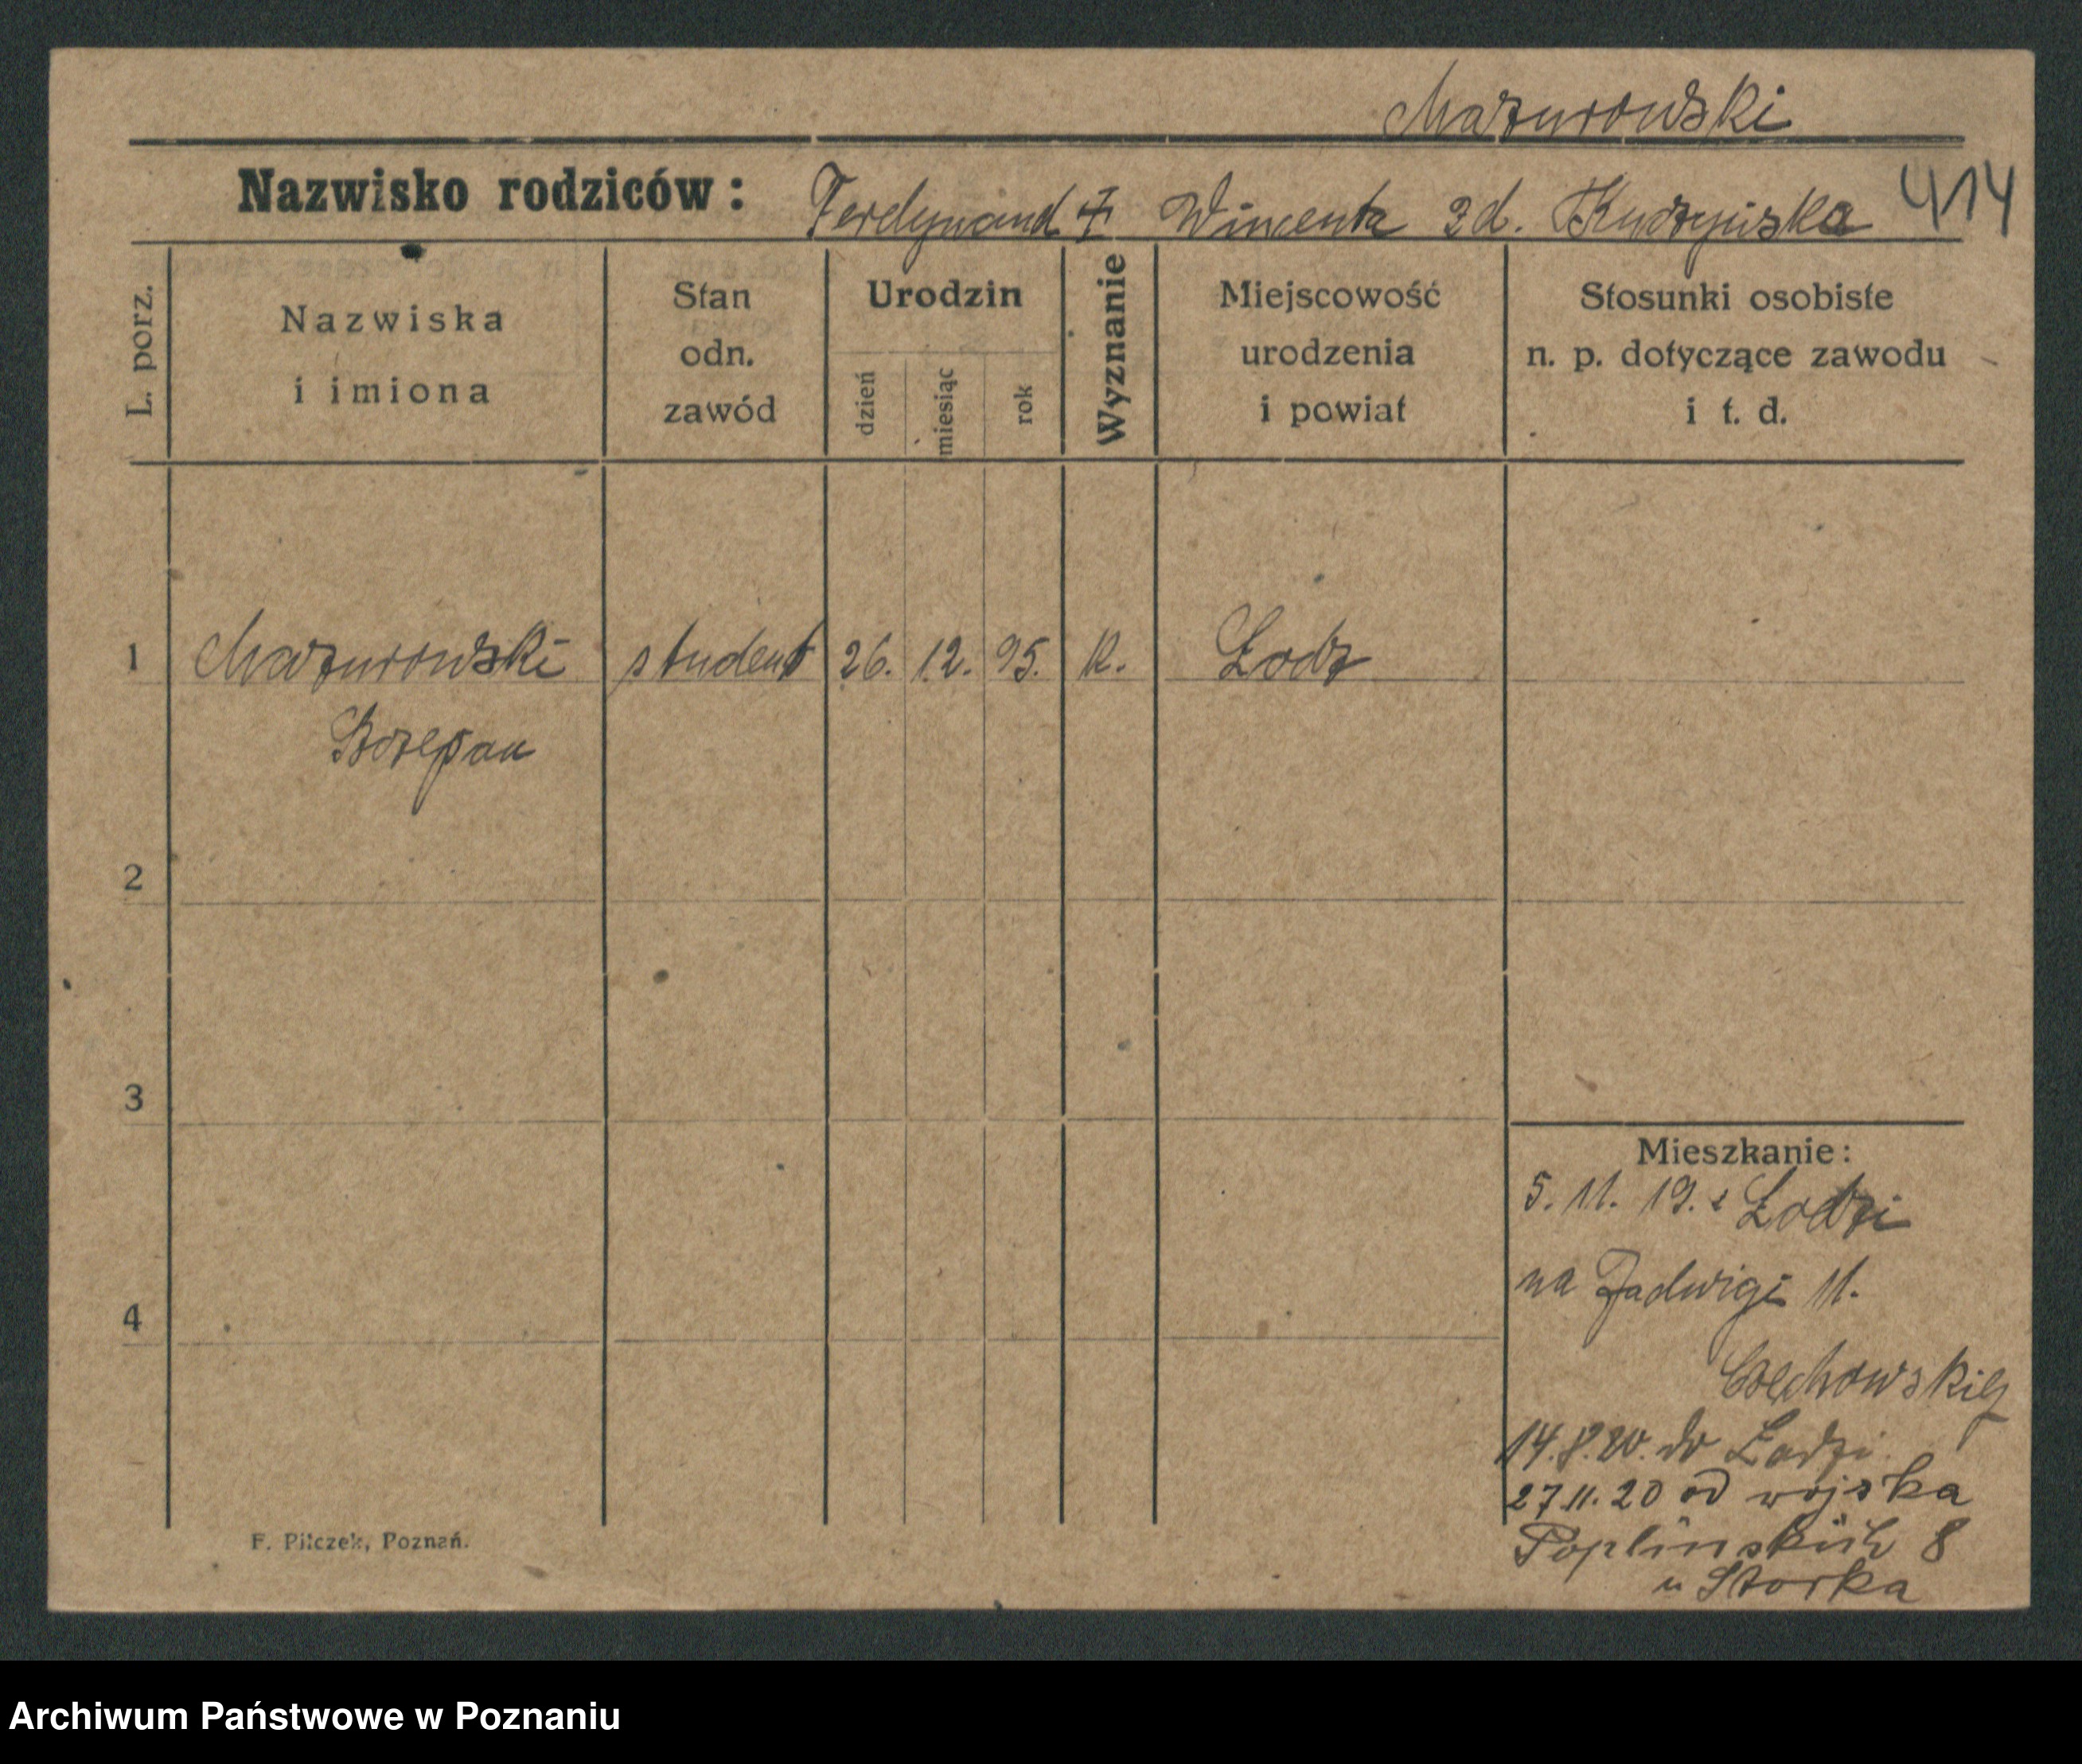 Mazurowski
Nazwisko rodziców: Ferdynand † Wincenta zd. 414
L. porz.
Nazwiska
i imiona
Stan
odn.
zawód
Urodzin
dzień
miesiąc
rok
Wyznanie
Miejscowość
urodzenia
i powiat
Stosunki osobiste
n. p. dotyczące zawodu
i t. d.
1 Mazurowski student 26. 12. 95. K. Łodz
Szczepan
2
3
4
Mieszkanie:
5. 11. 19. z Łodzi
na Jadwigi 11.
Czechowskiej
14.8.20. do Łodzi
27.11.20 od wojska
Poplinskich 8
u Storka
F. Pilczek, Poznań.
Archiwum Państwowe w Poznaniu